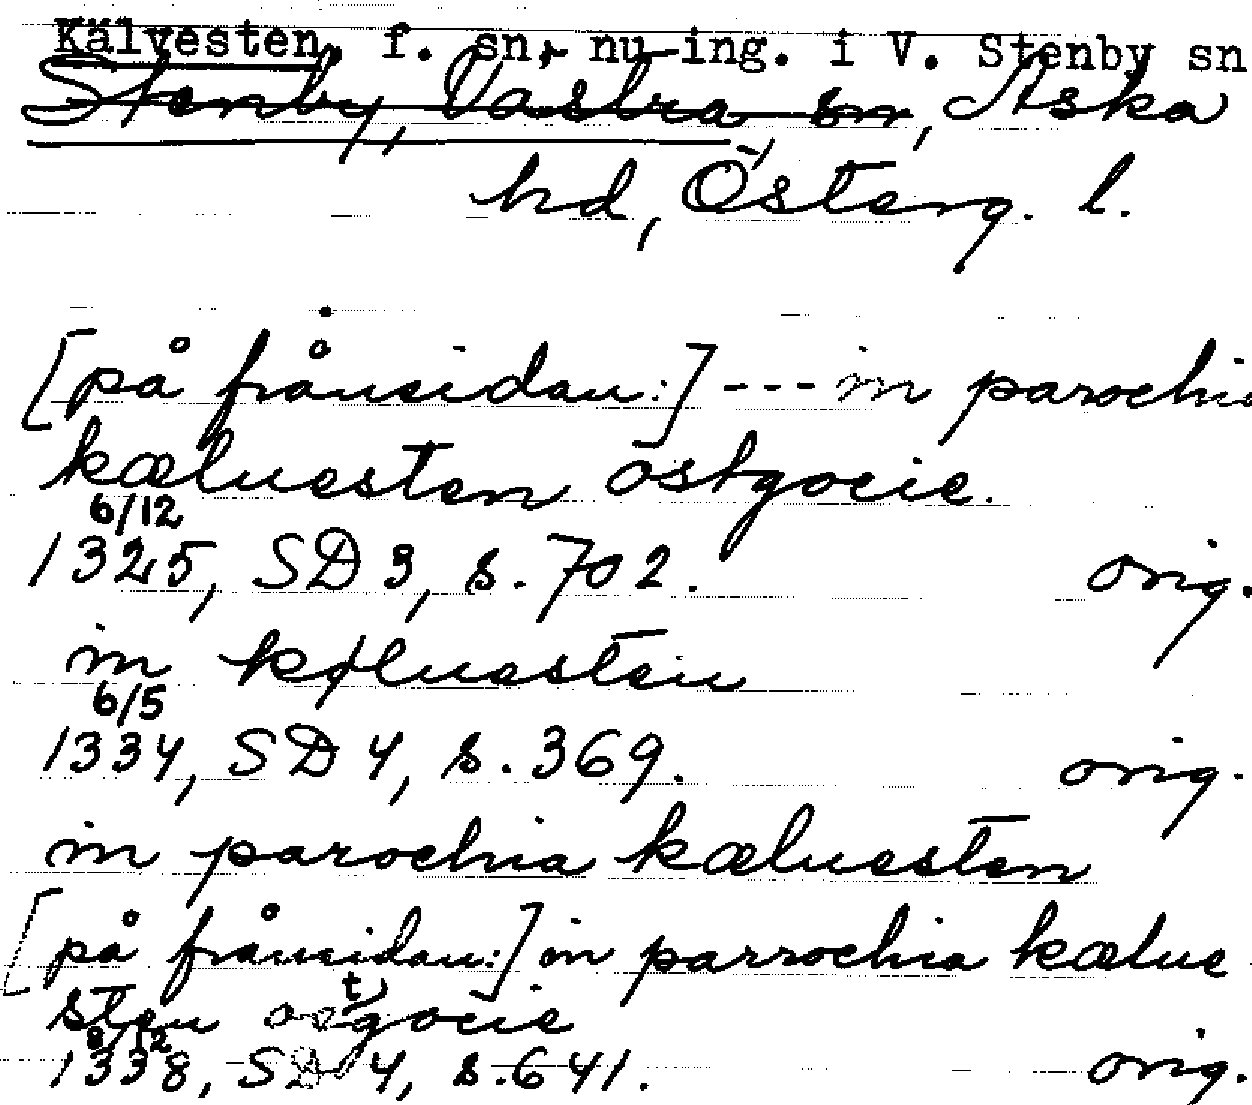 Kälvesten, f. sn, nu ing. i V. Stenby sn
Stenby, Västra sn, Aska
hd, Österg. l.
[på frånsidan:] --- in parochia
kæluesten ostgocie.
6/12
1325, SD 3, s. 702. orig.
in kæluesten
6/5
1334, SD 4, s. 369. orig.
in parochia kæluesten
[på frånsidan:] in parrochia kælue
sten ostgocie
8/12
1338, SD 4, s. 641. orig.